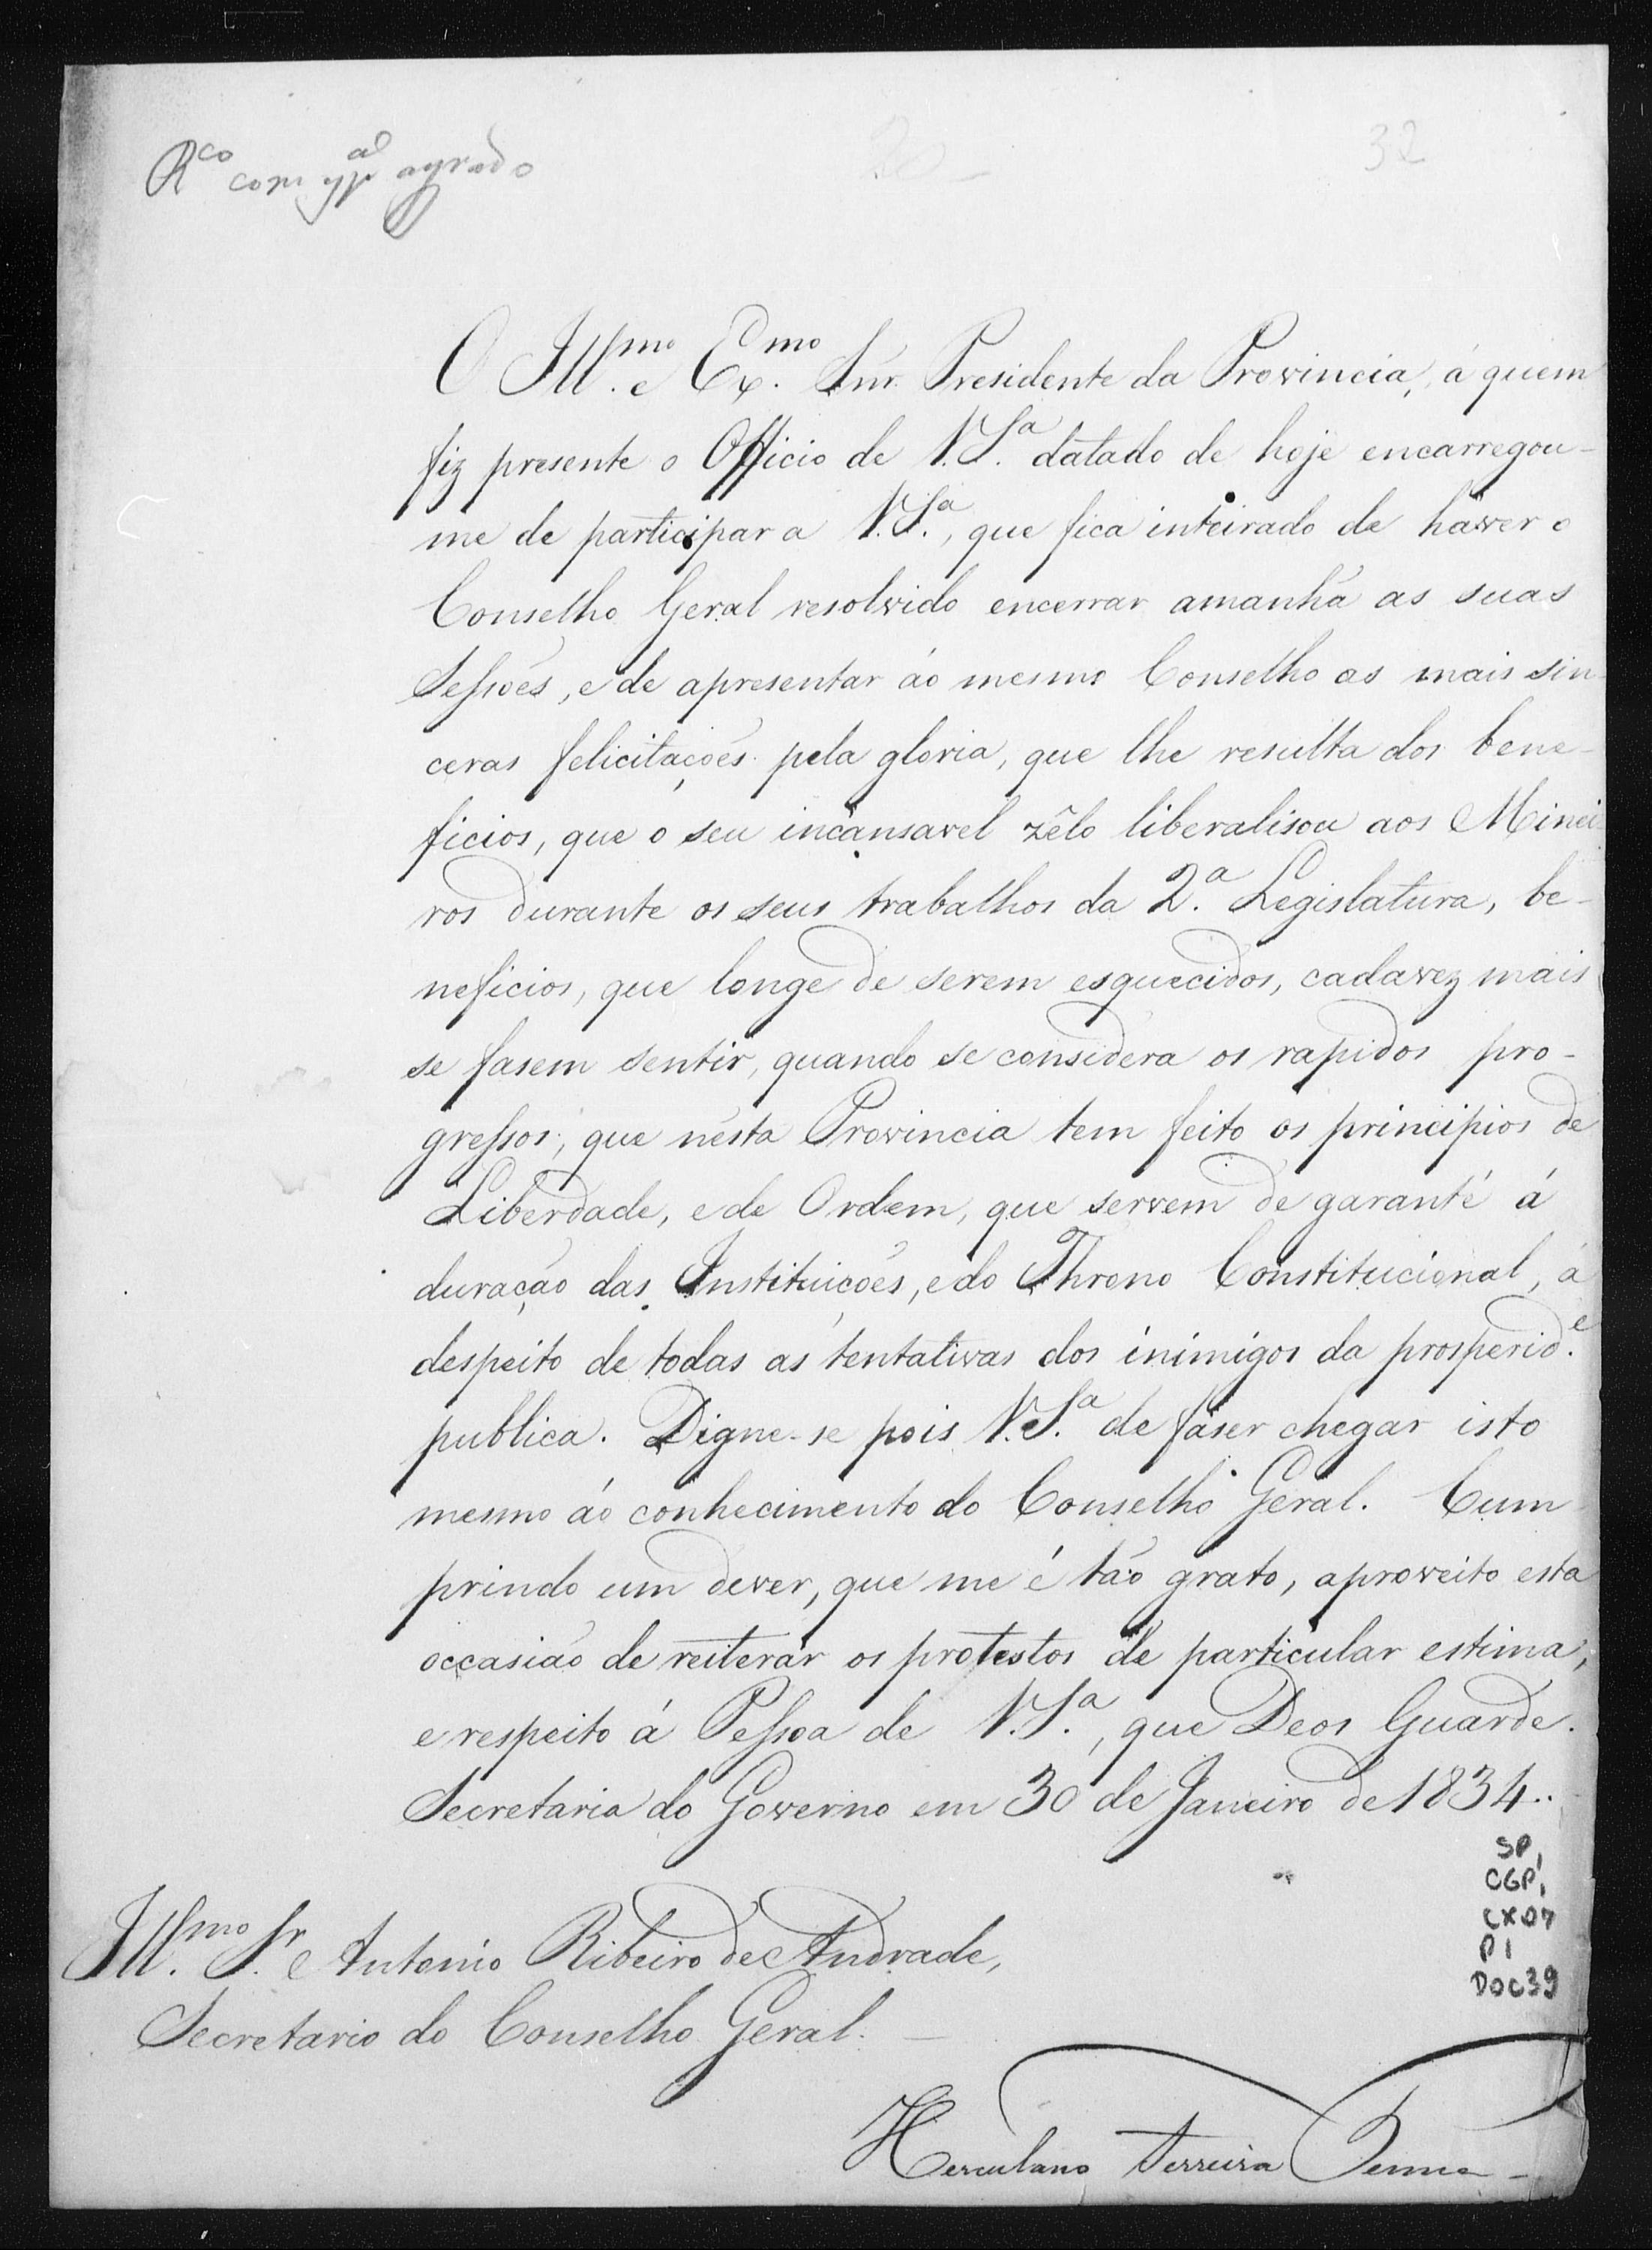 R.co com espal agrado
32
O Ill.mo e Ex.mo Snr. Presidente da Provincia, á quem
fiz presente o Officio de V.S.a datado de hoje encarregou-
me de participar a V.S.a, que fica inteirado de haver o
Conselho Geral resolvido encerrar amanhã as suas
Sessões, e de apresentar áo mesmo Conselho as mais sin
ceras felicitações pela gloria, que lhe resulta dos bene-
ficios, que o seu incansavel zêlo liberalisou aos Minei
ros durante os seus trabalhos da 2.a Legislatura, be-
neficios, que longe de serem esquecidos, cadavez mais
se fasem sentir, quando se considera os rapidos pro-
gressos, que nésta Provincia tem feito os principios de
Liberdade, e de Ordem, que servem de garante á
duração das Instituicões, e do Throno Constitucional, á
despeito de todas as tentativas dos inimigos da prosperid.e
publica. Digne-se pois V.S.a de faser chegar isto
mesmo áo conhecimento do Conselho Geral. Cum
prindo um dever, que me é tão grato, aproveito esta
occasião de reiterar os protestos de particular estima,
e respeito á Pessoa de V.S.a, que Deos Guarde.
Secretaria do Governo em 30 de Janeiro de 1834..
SP,
CGP1,
CX07
P1
DOC39
Ill.mo S.r Antonio Ribeiro de Andrade,
Secretario do Conselho Geral.
Herculano Ferreira Penna